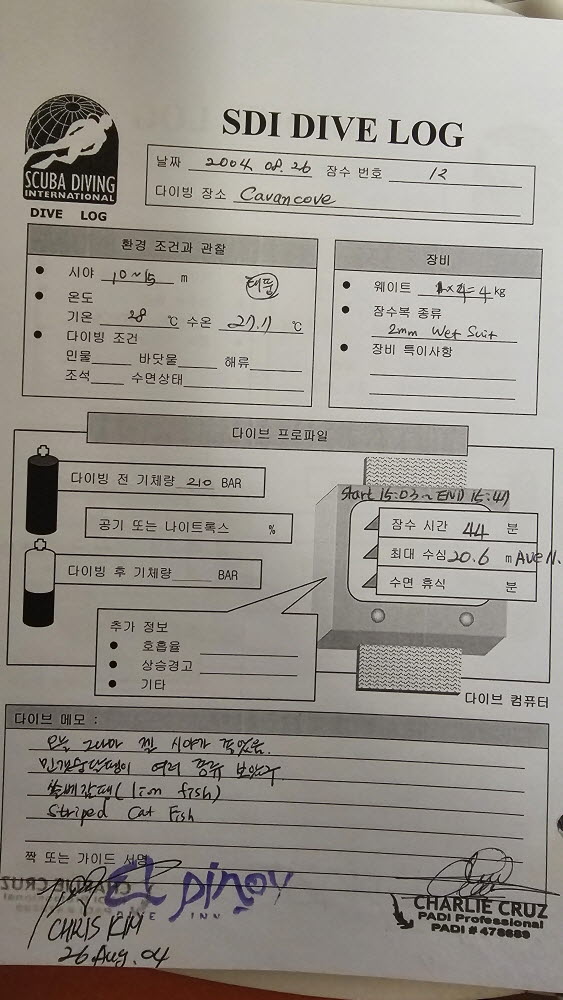 SDI DIVE LOG
SCUBA DIVING
INTERNATIONAL
DIVE LOG
날짜 2004. 08. 26 잠수 번호 12
다이빙 장소 Cavancove
환경 조건과 관찰
시야 10~15 m 태풍
온도
기온 28 ℃ 수온 27.7 ℃
다이빙 조건
민물 바닷물 해류
조석 수면상태
장비
웨이트 1×4=4 kg
잠수복 종류
2mm Wet Suit
장비 특이사항
다이브 프로파일
다이빙 전 기체량 210 BAR
공기 또는 나이트록스 %
다이빙 후 기체량 BAR
추가 정보
호흡율
상승경고
기타
Start 15:03 ~ END 15:47
잠수 시간 44 분
최대 수심 20.6 m Ave 11.
수면 휴식 분
다이브 컴퓨터
다이브 메모 :
오늘 그나마 젤 시야가 좋았음.
민갯숭달팽이 여러 종류 보았구
쏠베감팽 (lion fish)
Striped Cat Fish
짝 또는 가이드 서명
El pinoy
DIVE INN
CHRIS KIM
26. Aug. 04
CHARLIE CRUZ
PADI Professional
PADI # 478689